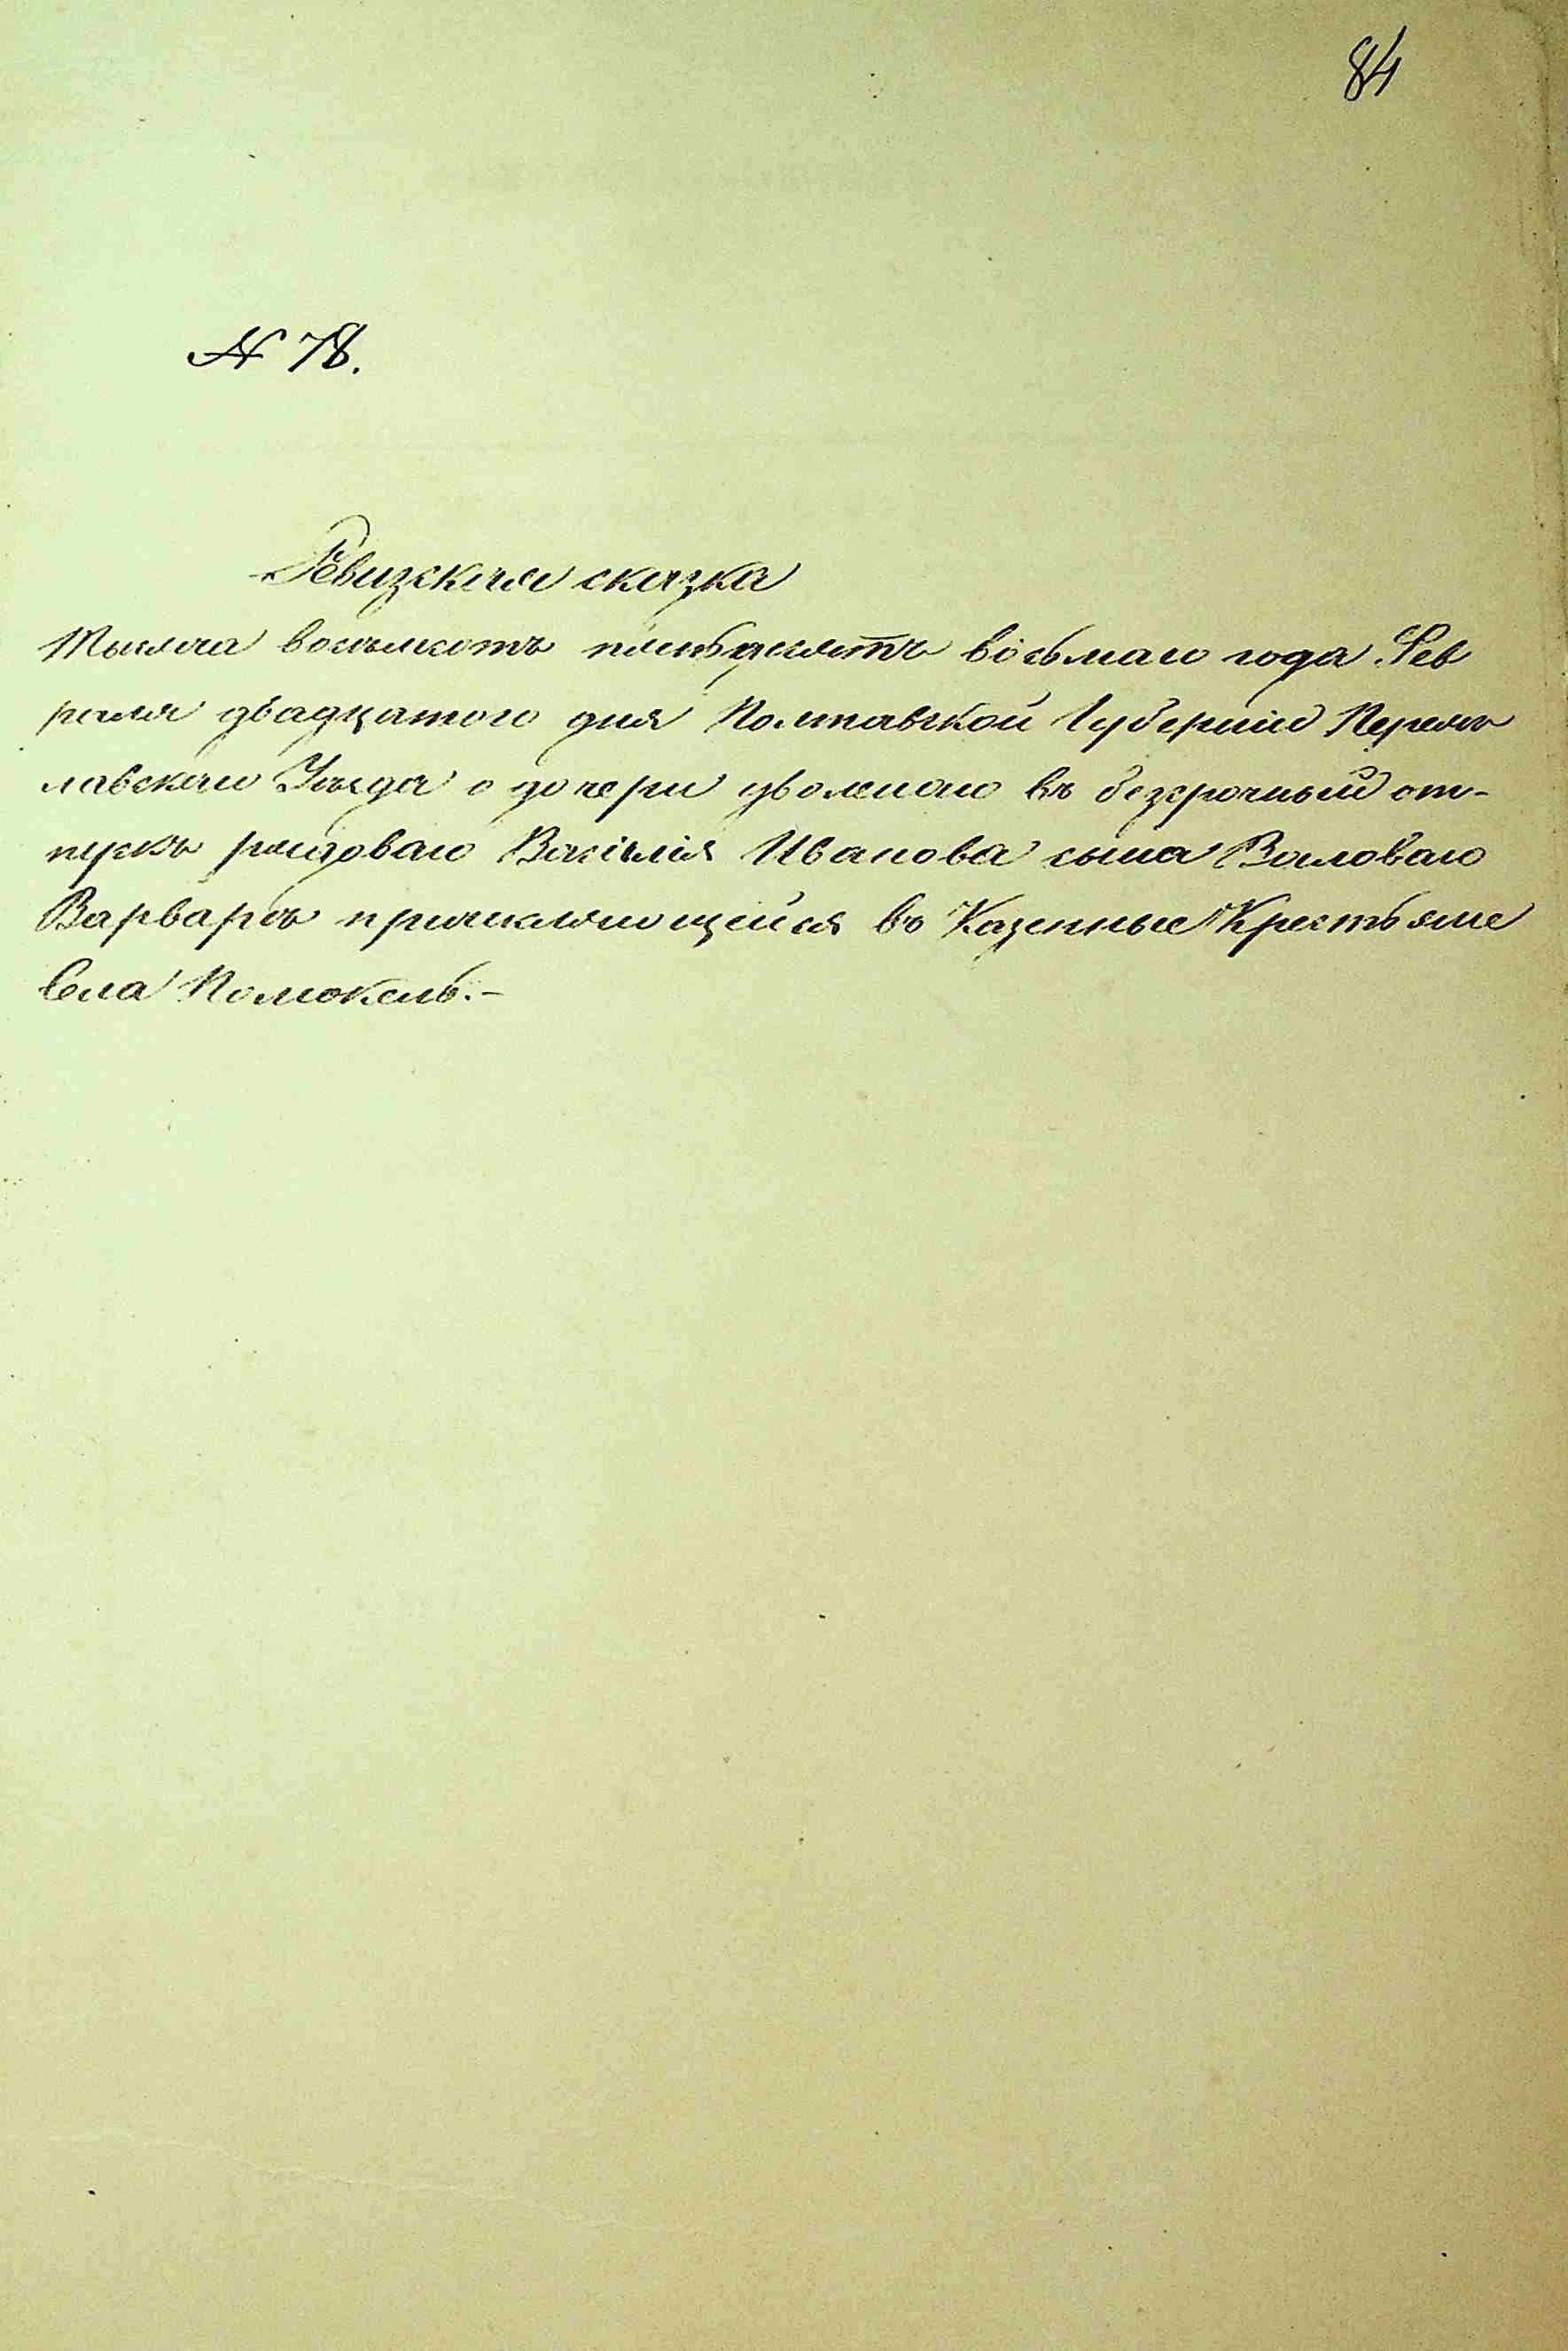 84
№ 78.
Ревизская сказка
Тысяча восемьсотъ пятьдесятъ восьмаго года Фев
раля двадцатого дня Полтавской Губерніи Переяс
лавскаго Уѣзда о дочери уволенаго въ безсрочный от-
пускъ рядоваго Василія Иванова сына Воловаго
Варварѣ причисляющейся въ Казенные Крестьяне
Села Помоклей.-